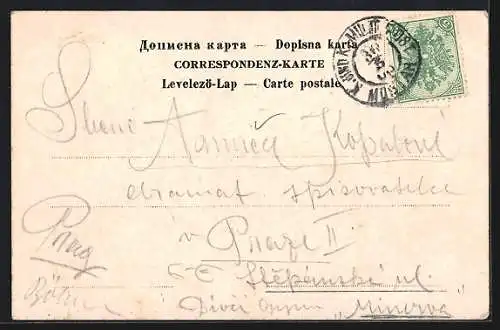 Дописна карта — Dopisna karta
CORRESPONDENZ-KARTE
Levelező-Lap — Carte postale
K. UND K. MILIT. POST
dramat. spisovatelka
v Praze II
Štěpánská ul.
Dívčí gymn. "Minerva"
Prag